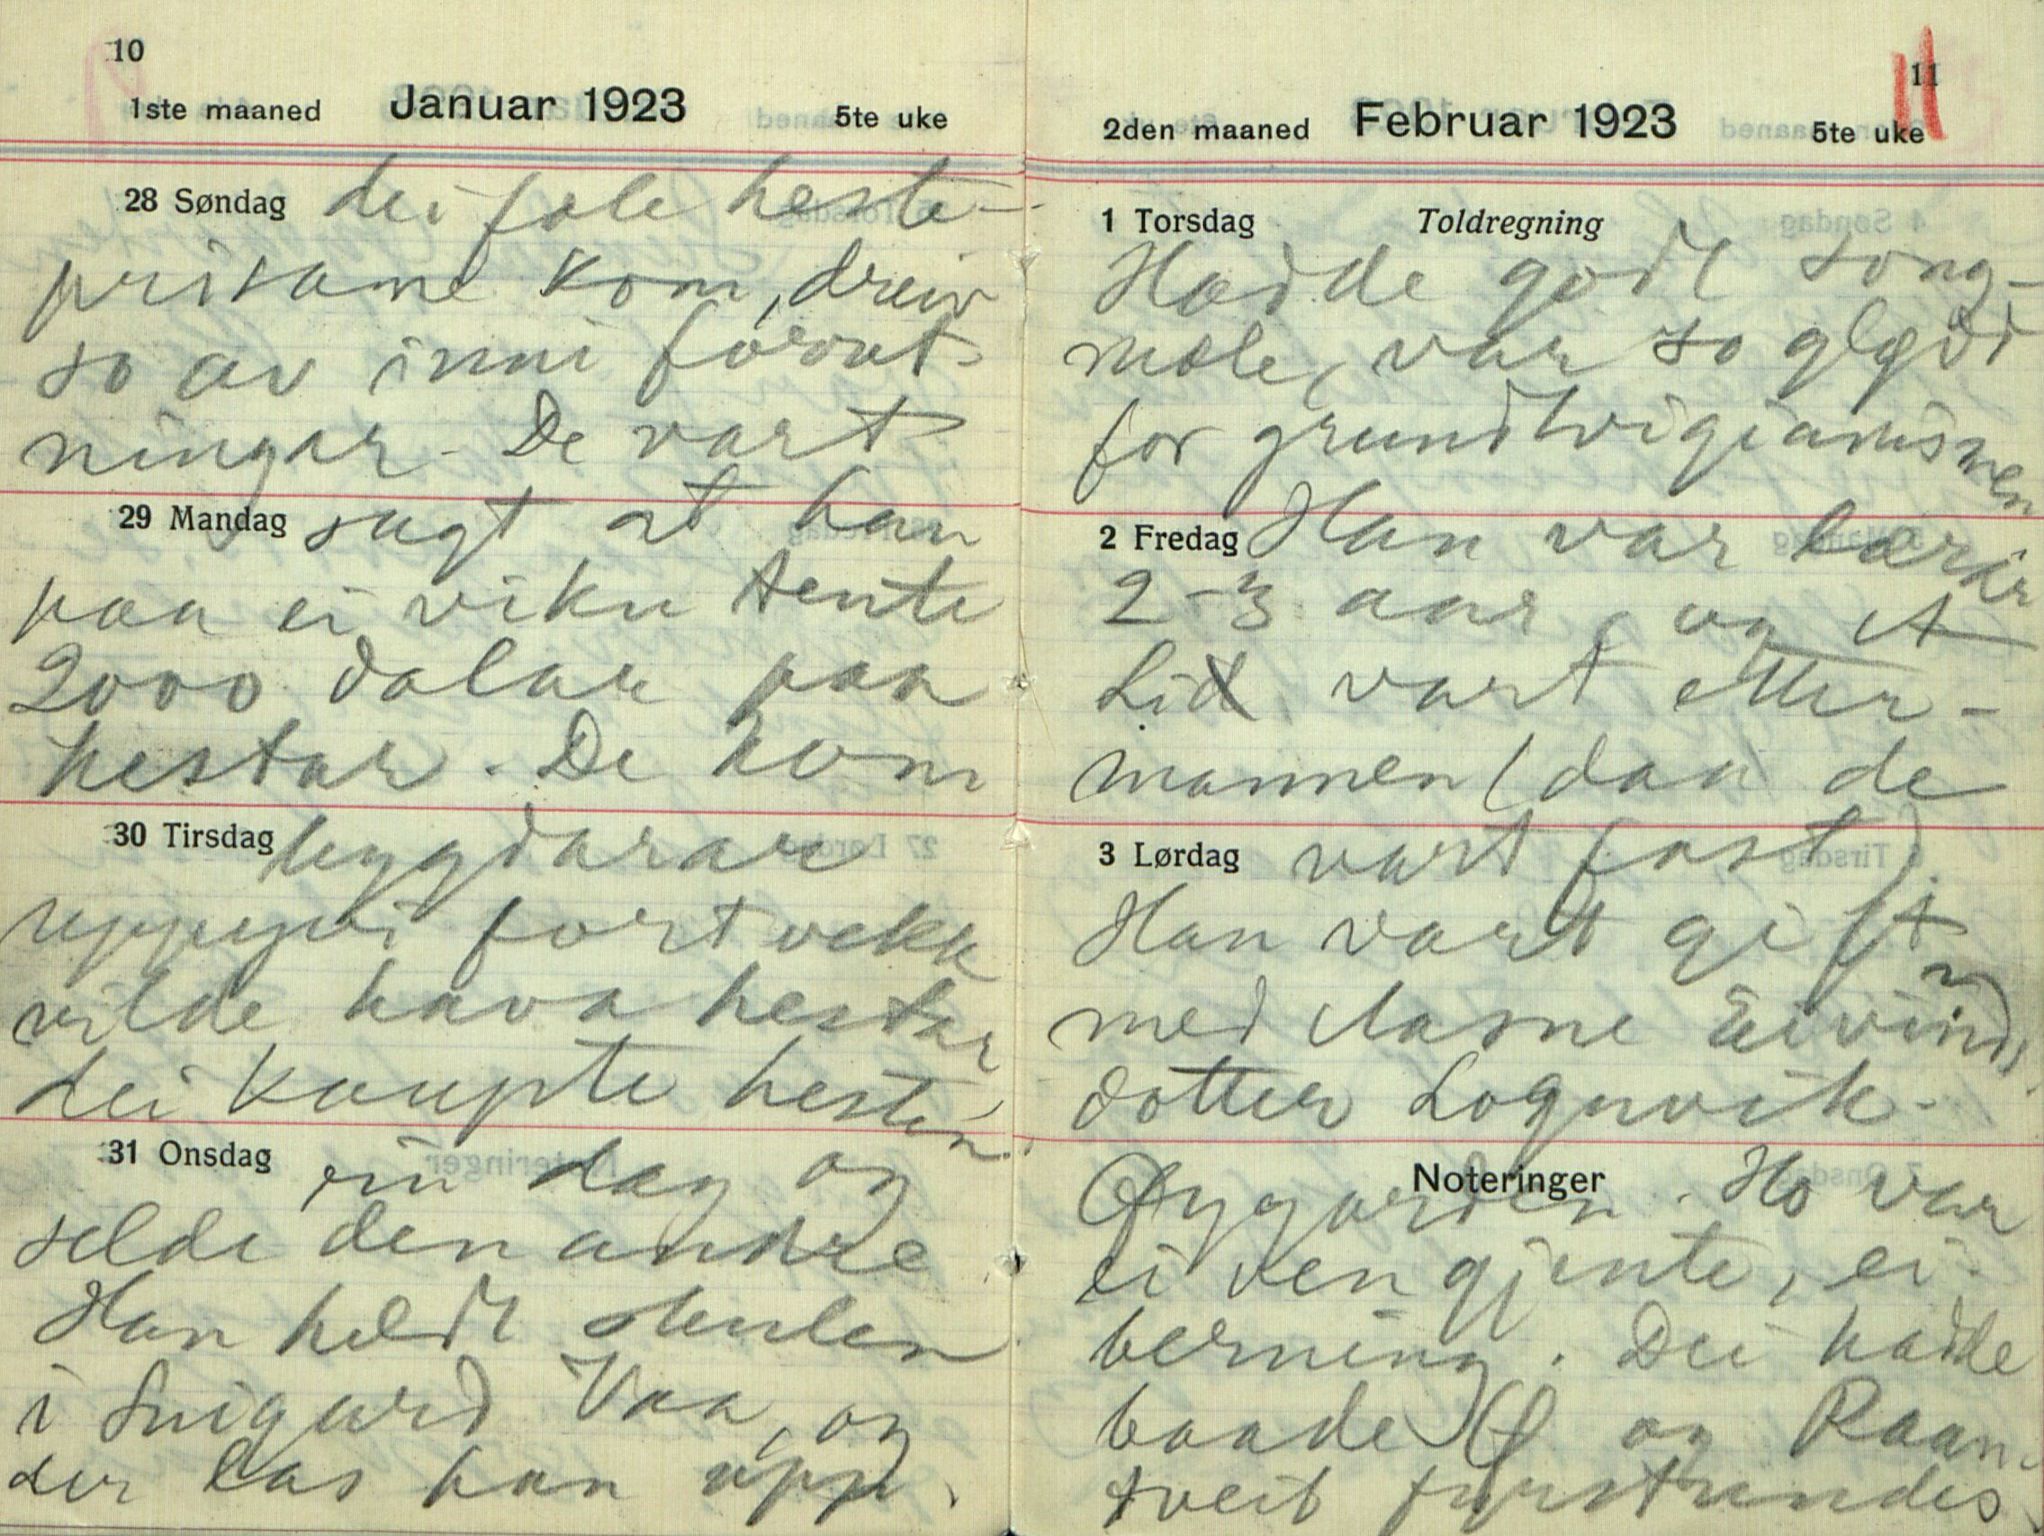 10
1ste maaned Januar 1923 5te uke
28 Søndag dei fole heste-
prisane kom, dreiv
so av inni forret-
ningar. De vart
29 Mandag sagt at han
paa ei viku tente
2000 dalar paa
hestar. De kom
30 Tirsdag bygdarar
uppyvi fort vekk
vilde hava hestar
dei kaupte hesten
31 Onsdag ein dag og
selde den andre
Han heldt skulen
i Snigard Vaa, og
der las han upp.
11
2den maaned Februar 1923 5te uke
1 Torsdag Toldregning
Hadde godt song-
mæle, var so glød
for grundtvigianismen
2 Fredag Han var lærar
2-3 aar, og
Lid vart etter-
mannen (daa de
3 Lørdag vart fast).
Han vart gift
med Aasne Eivinds
dotter Lognvik-
Noteringer
Øygarden. Ho var
ei ven gjente, ei
berning. Dei hadde
baade Ø og Raan-
tveit fyrstundes